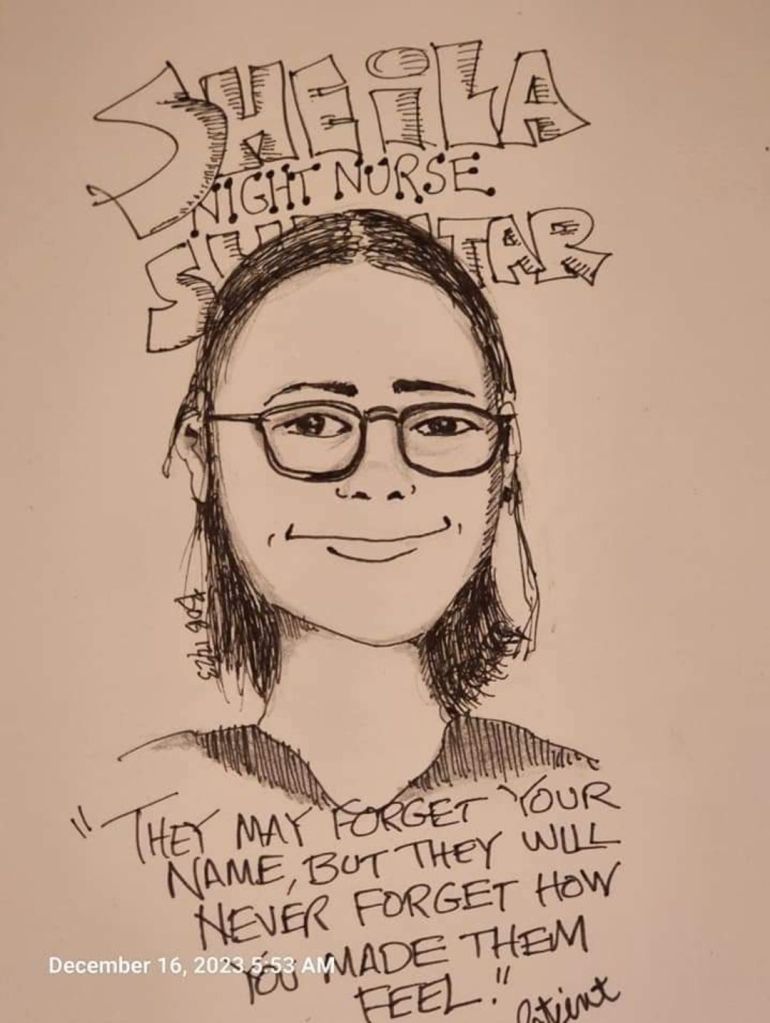 SHEILA
NIGHT NURSE
SUPERSTAR
"THEY MAY FORGET YOUR
NAME, BUT THEY WILL
NEVER FORGET HOW
YOU MADE THEM
FEEL."
Patient
December 16, 2023 5:53 AM